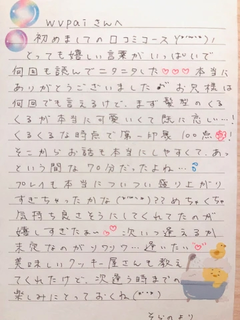 wvpaiさんへ
初めましての口コミコース(*´▽`*)!
とっても嬉しい言葉がいっぱいで
何回も読んでニタニタした♡♡♡本当に
ありがとうございました お兄様は
何回でも言えるけど、まず髪型のくる
くるが本当に可愛いくて既に恋しい…!
くるくるな時点で第一印象100点
そこからお話も本当にしやすくて、あっ
という間な70分だったよね…
プレイも本当についつい盛り上がり
すぎちゃったかな ??めちゃくちゃ
気持ち良さそうにしてくれてたのが
嬉しすぎたぁ〜♡次いつ逢えるか
未定なのがソワソワ…逢いたい♡
美味しいクッキー屋さんも教え
てくれたけど、次逢う時までの
楽しみにとっておくね
そらのより